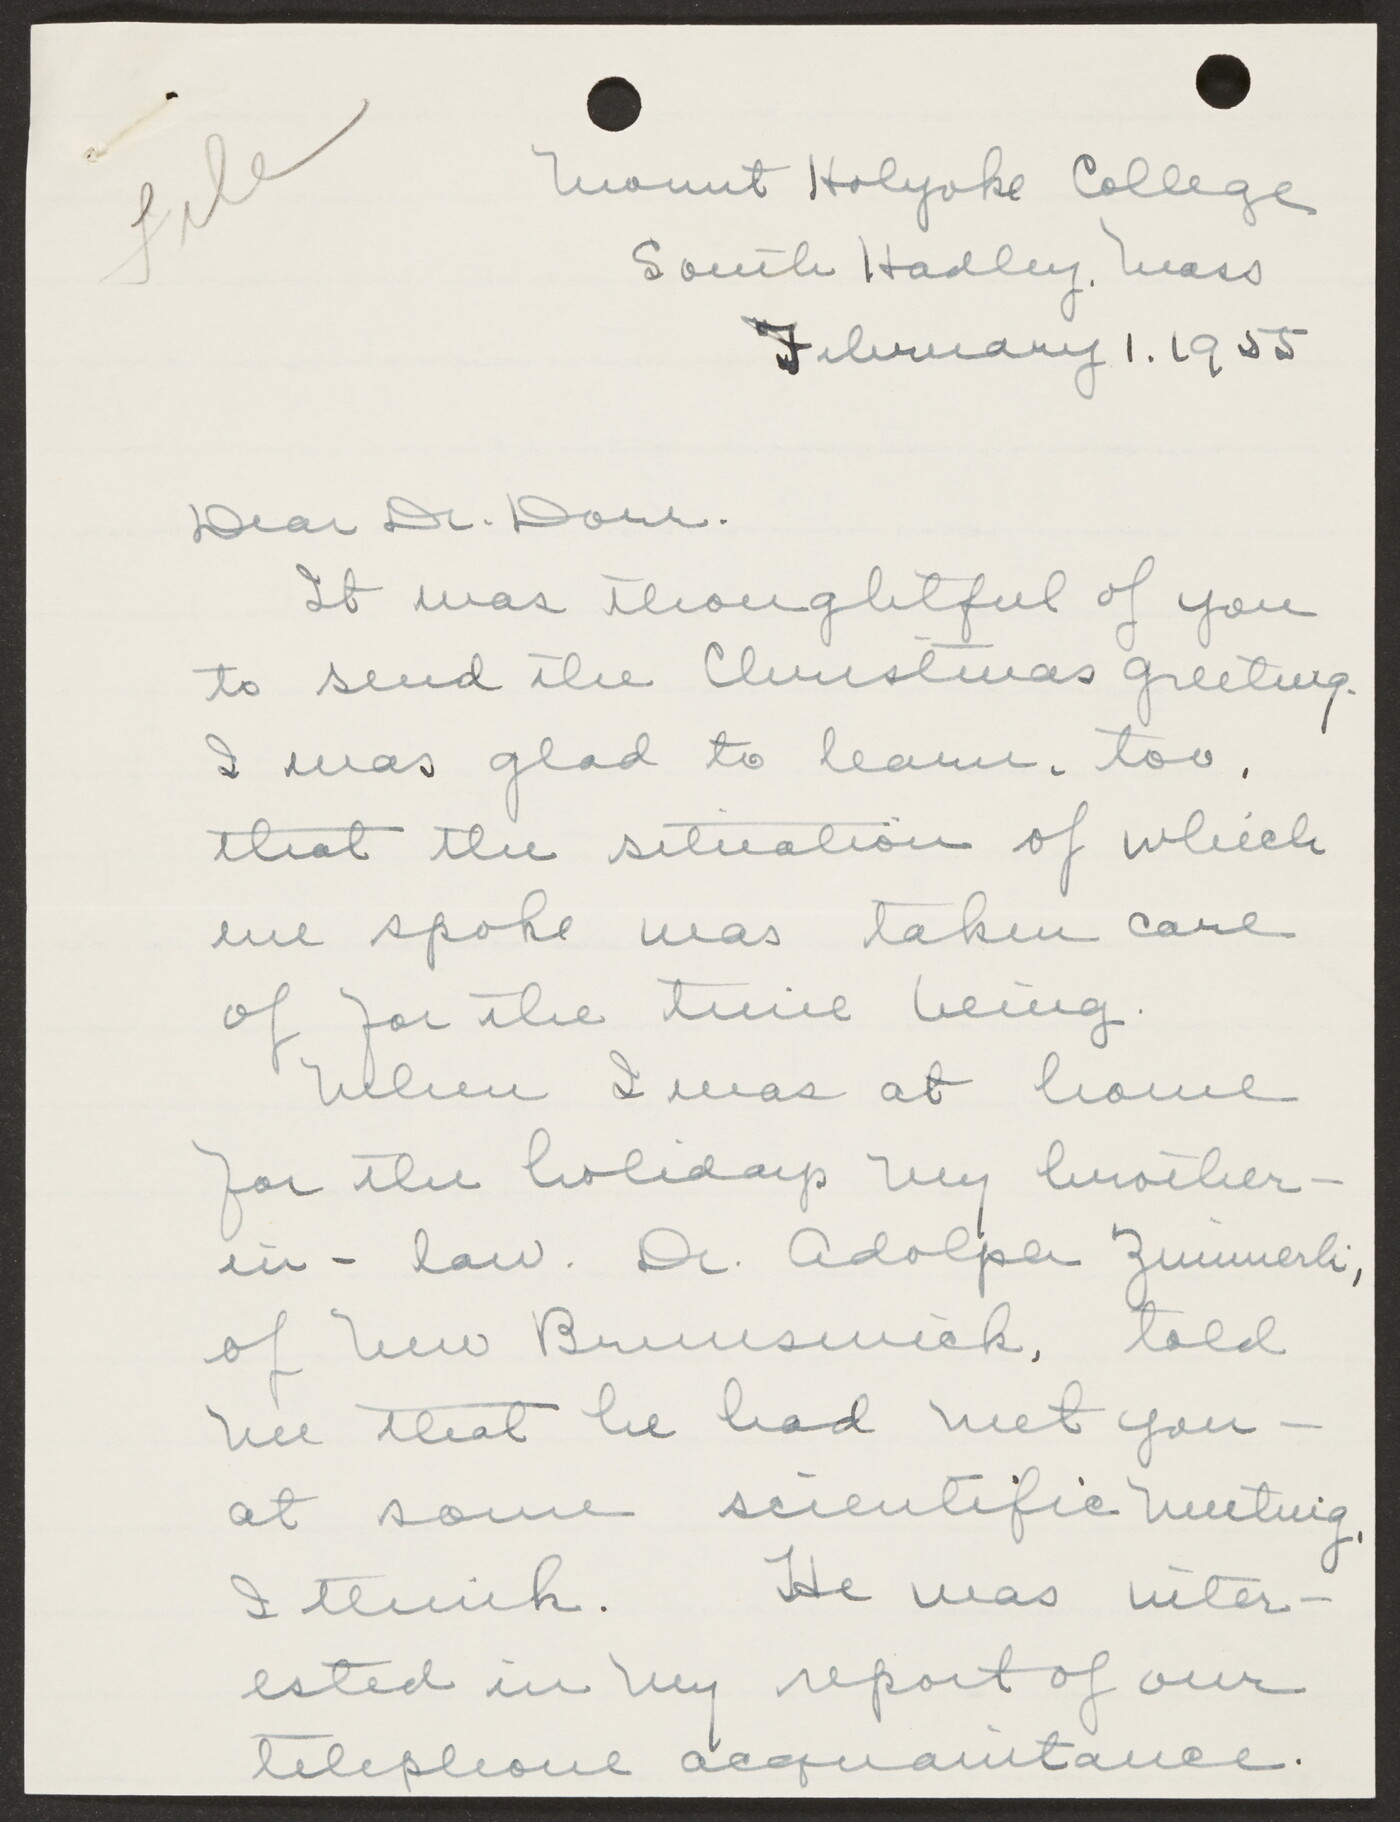 File
Mount Holyoke College
South Hadley, Mass
February 1. 1955
Dear Dr. Dorr.
It was thoughtful of you
to send the Christmas greeting.
I was glad to learn, too,
that the situation of which
we spoke was taken care
of for the time being.
When I was at home
for the holidays my brother-
in-law. Dr. Adolph Zimmerli,
of New Brunswick, told
me that he had met you -
at some scientific meeting,
I think. He was inter-
ested in my report of our
telephone acquaintance.